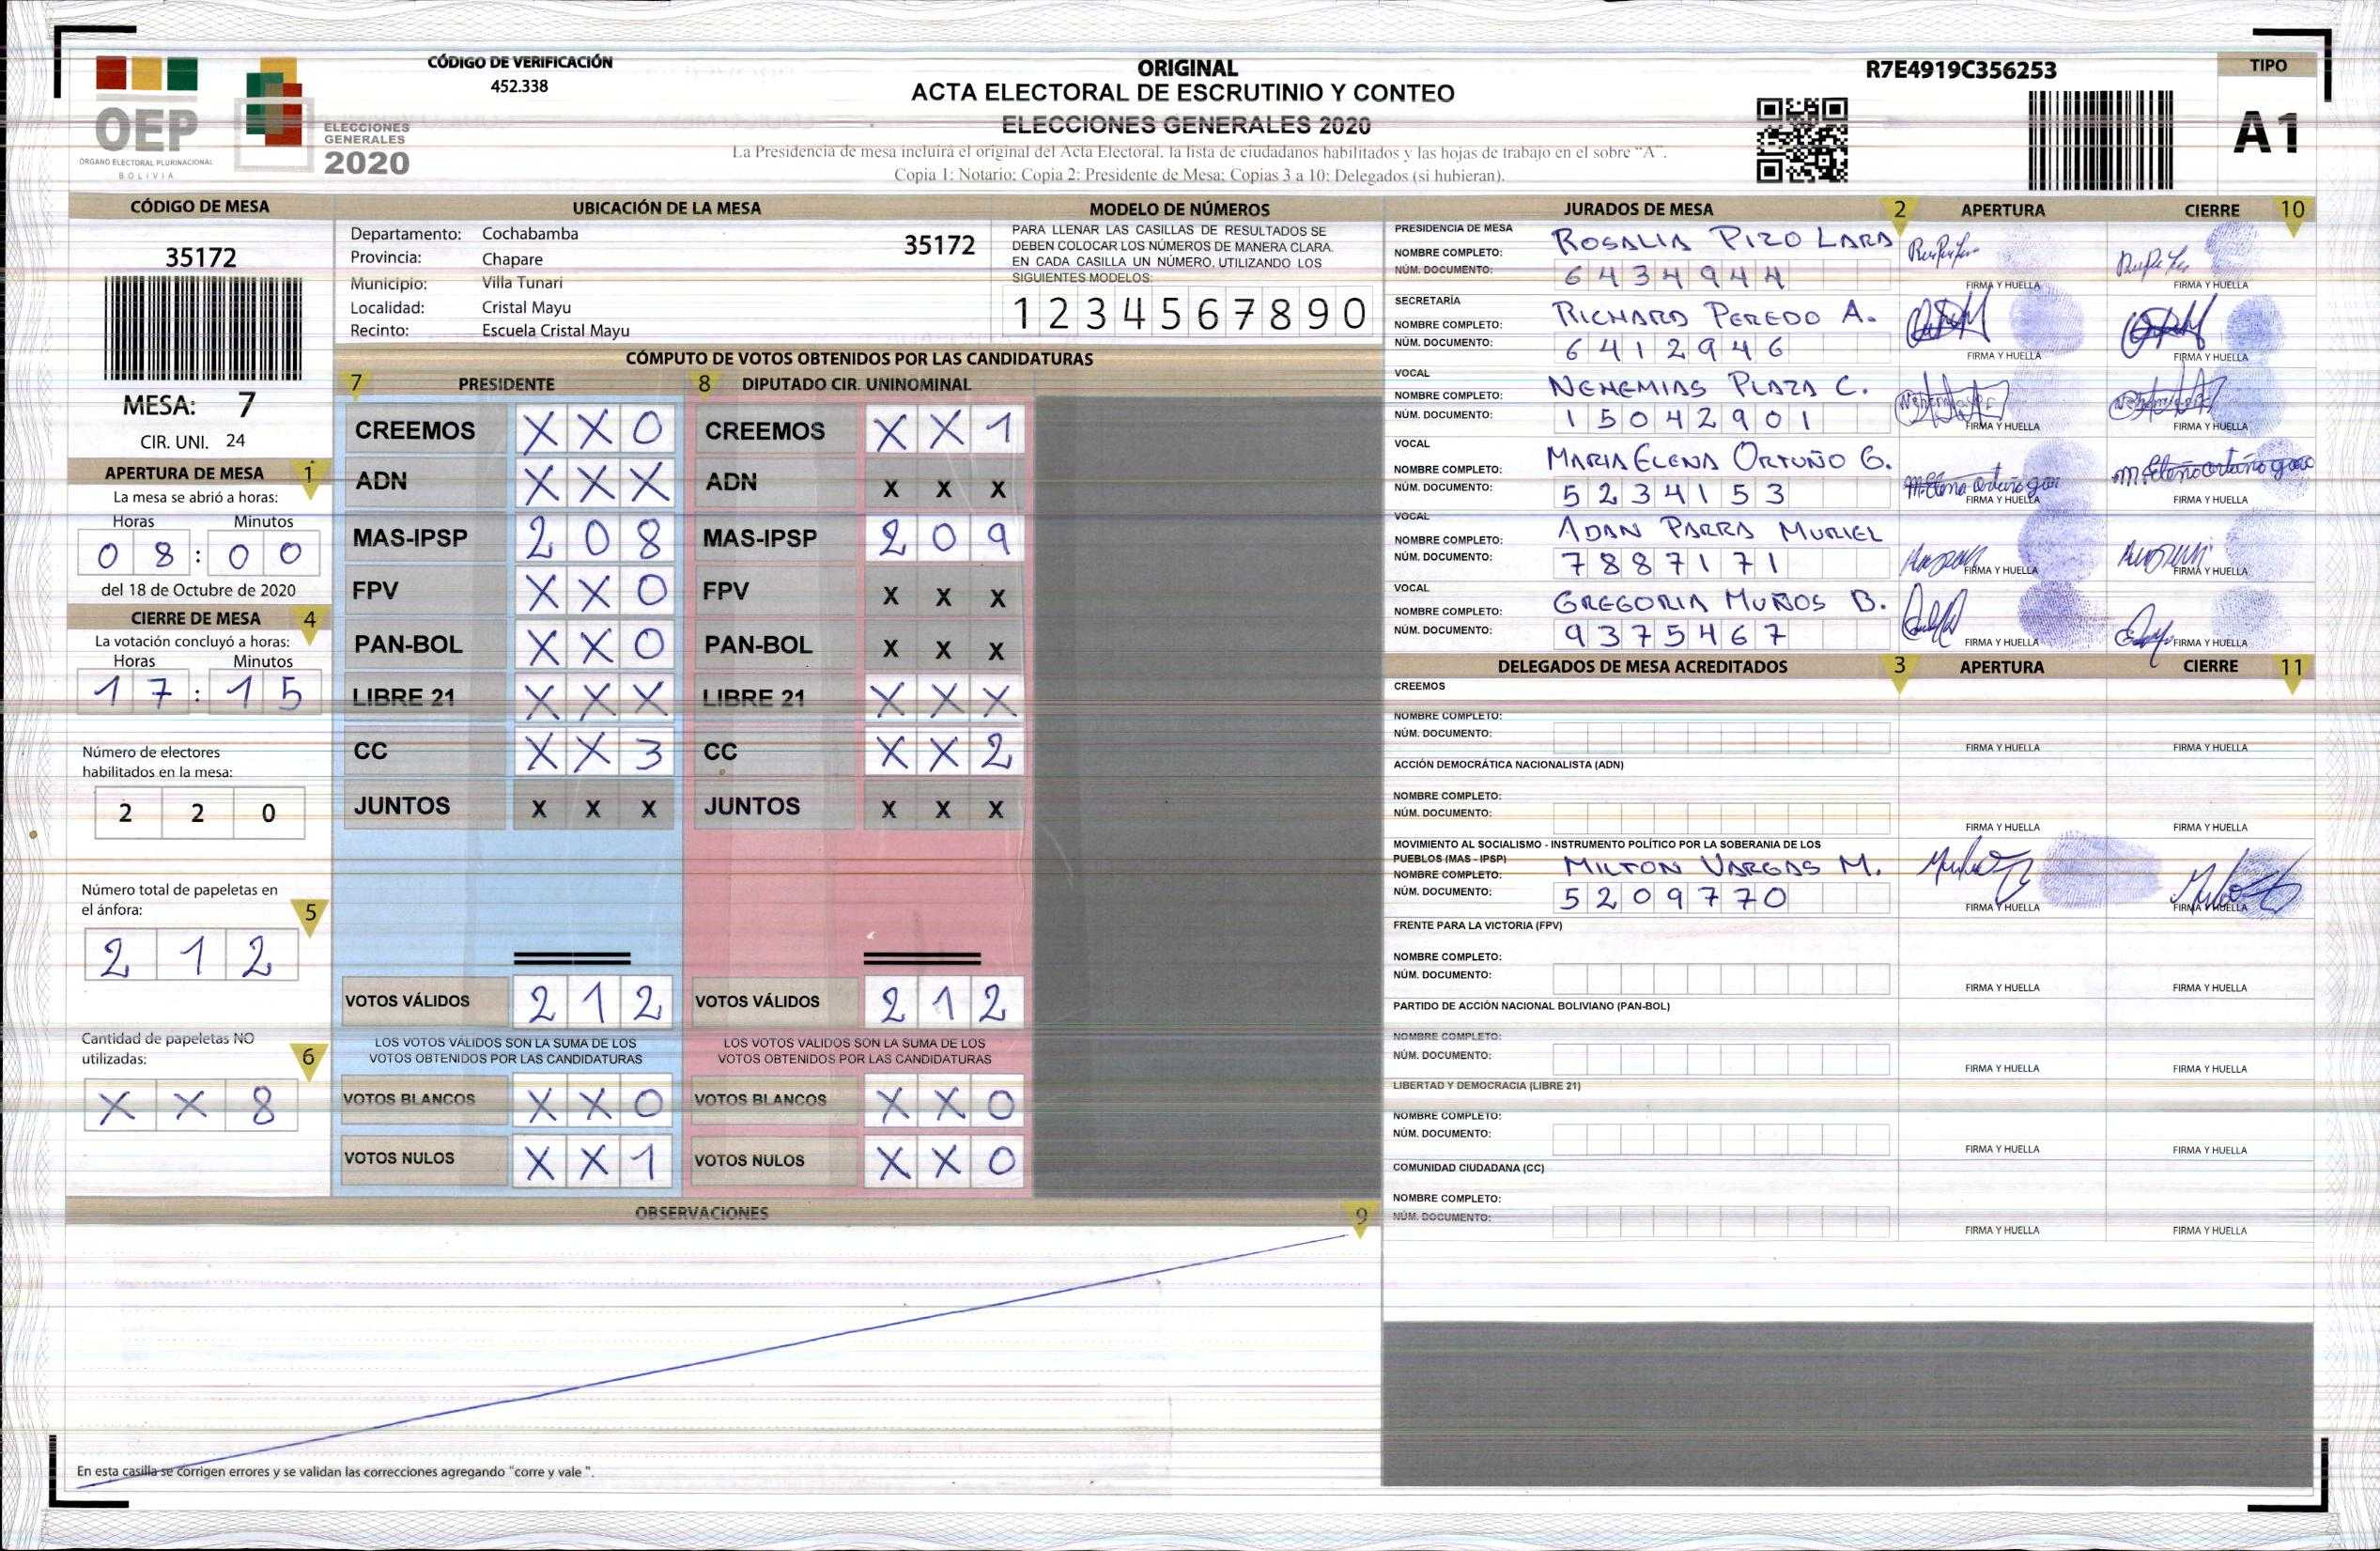 CÓDIGO DE VERIFICACIÓN
452.338
OEP
ÓRGANO ELECTORAL PLURINACIONAL
BOLIVIA
ELECCIONES
GENERALES
2020
ORIGINAL
ACTA ELECTORAL DE ESCRUTINIO Y CONTEO
ELECCIONES GENERALES 2020
La Presidencia de mesa incluirá el original del Acta Electoral, la lista de ciudadanos habilitados y las hojas de trabajo en el sobre "A".
Copia 1: Notario; Copia 2: Presidente de Mesa; Copias 3 a 10: Delegados (si hubieran).
R7E4919C356253
TIPO
A1
CÓDIGO DE MESA
35172
MESA: 7
CIR. UNI. 24
APERTURA DE MESA 1
La mesa se abrió a horas:
Horas Minutos
0 8 : 0 0
del 18 de Octubre de 2020
CIERRE DE MESA 4
La votación concluyó a horas:
Horas Minutos
1 7 : 1 5
Número de electores
habilitados en la mesa:
2 2 0
Número total de papeletas en
el ánfora: 5
2 1 2
Cantidad de papeletas NO
utilizadas: 6
X X 8
UBICACIÓN DE LA MESA
Departamento: Cochabamba
Provincia: Chapare
Municipio: Villa Tunari
Localidad: Cristal Mayu
Recinto: Escuela Cristal Mayu
35172
MODELO DE NÚMEROS
PARA LLENAR LAS CASILLAS DE RESULTADOS SE
DEBEN COLOCAR LOS NÚMEROS DE MANERA CLARA.
EN CADA CASILLA UN NÚMERO, UTILIZANDO LOS
SIGUIENTES MODELOS:
1 2 3 4 5 6 7 8 9 0
CÓMPUTO DE VOTOS OBTENIDOS POR LAS CANDIDATURAS
7 PRESIDENTE 8 DIPUTADO CIR. UNINOMINAL
CREEMOS X X 0 CREEMOS X X 1
ADN X X X ADN X X X
MAS-IPSP 2 0 8 MAS-IPSP 2 0 9
FPV X X 0 FPV X X X
PAN-BOL X X 0 PAN-BOL X X X
LIBRE 21 X X X LIBRE 21 X X X
CC X X 3 CC X X 2
JUNTOS X X X JUNTOS X X X
VOTOS VÁLIDOS 2 1 2 VOTOS VÁLIDOS 2 1 2
LOS VOTOS VÁLIDOS SON LA SUMA DE LOS LOS VOTOS VÁLIDOS SON LA SUMA DE LOS
VOTOS OBTENIDOS POR LAS CANDIDATURAS VOTOS OBTENIDOS POR LAS CANDIDATURAS
VOTOS BLANCOS X X 0 VOTOS BLANCOS X X 0
VOTOS NULOS X X 1 VOTOS NULOS X X 0
OBSERVACIONES 9
En esta casilla se corrigen errores y se validan las correcciones agregando "corre y vale ".
JURADOS DE MESA 2 APERTURA CIERRE 10
PRESIDENCIA DE MESA
NOMBRE COMPLETO: ROSALIA PIZO LARA
NÚM. DOCUMENTO: 6434944
FIRMA Y HUELLA FIRMA Y HUELLA
SECRETARÍA
NOMBRE COMPLETO: RICHARD PEREDO A.
NÚM. DOCUMENTO: 6412946
FIRMA Y HUELLA FIRMA Y HUELLA
VOCAL
NOMBRE COMPLETO: NEHEMIAS PLAZA C.
NÚM. DOCUMENTO: 15042901
FIRMA Y HUELLA FIRMA Y HUELLA
VOCAL
NOMBRE COMPLETO: MARIA ELENA ORTUÑO G.
NÚM. DOCUMENTO: 5234153
FIRMA Y HUELLA FIRMA Y HUELLA
VOCAL
NOMBRE COMPLETO: ADAN PARRA MURIEL
NÚM. DOCUMENTO: 7887171
FIRMA Y HUELLA FIRMA Y HUELLA
VOCAL
NOMBRE COMPLETO: GREGORIA MUÑOS B.
NÚM. DOCUMENTO: 9375467
FIRMA Y HUELLA FIRMA Y HUELLA
DELEGADOS DE MESA ACREDITADOS 3 APERTURA CIERRE 11
CREEMOS
NOMBRE COMPLETO:
NÚM. DOCUMENTO:
FIRMA Y HUELLA FIRMA Y HUELLA
ACCIÓN DEMOCRÁTICA NACIONALISTA (ADN)
NOMBRE COMPLETO:
NÚM. DOCUMENTO:
FIRMA Y HUELLA FIRMA Y HUELLA
MOVIMIENTO AL SOCIALISMO - INSTRUMENTO POLÍTICO POR LA SOBERANIA DE LOS
PUEBLOS (MAS - IPSP)
NOMBRE COMPLETO: MILTON VARGAS M.
NÚM. DOCUMENTO: 5209770
FIRMA Y HUELLA FIRMA Y HUELLA
FRENTE PARA LA VICTORIA (FPV)
NOMBRE COMPLETO:
NÚM. DOCUMENTO:
FIRMA Y HUELLA FIRMA Y HUELLA
PARTIDO DE ACCIÓN NACIONAL BOLIVIANO (PAN-BOL)
NOMBRE COMPLETO:
NÚM. DOCUMENTO:
FIRMA Y HUELLA FIRMA Y HUELLA
LIBERTAD Y DEMOCRACIA (LIBRE 21)
NOMBRE COMPLETO:
NÚM. DOCUMENTO:
FIRMA Y HUELLA FIRMA Y HUELLA
COMUNIDAD CIUDADANA (CC)
NOMBRE COMPLETO:
NÚM. DOCUMENTO:
FIRMA Y HUELLA FIRMA Y HUELLA